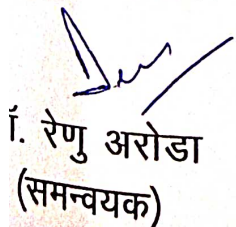 ॉ. रेणु अरोडा
(समन्वयक)